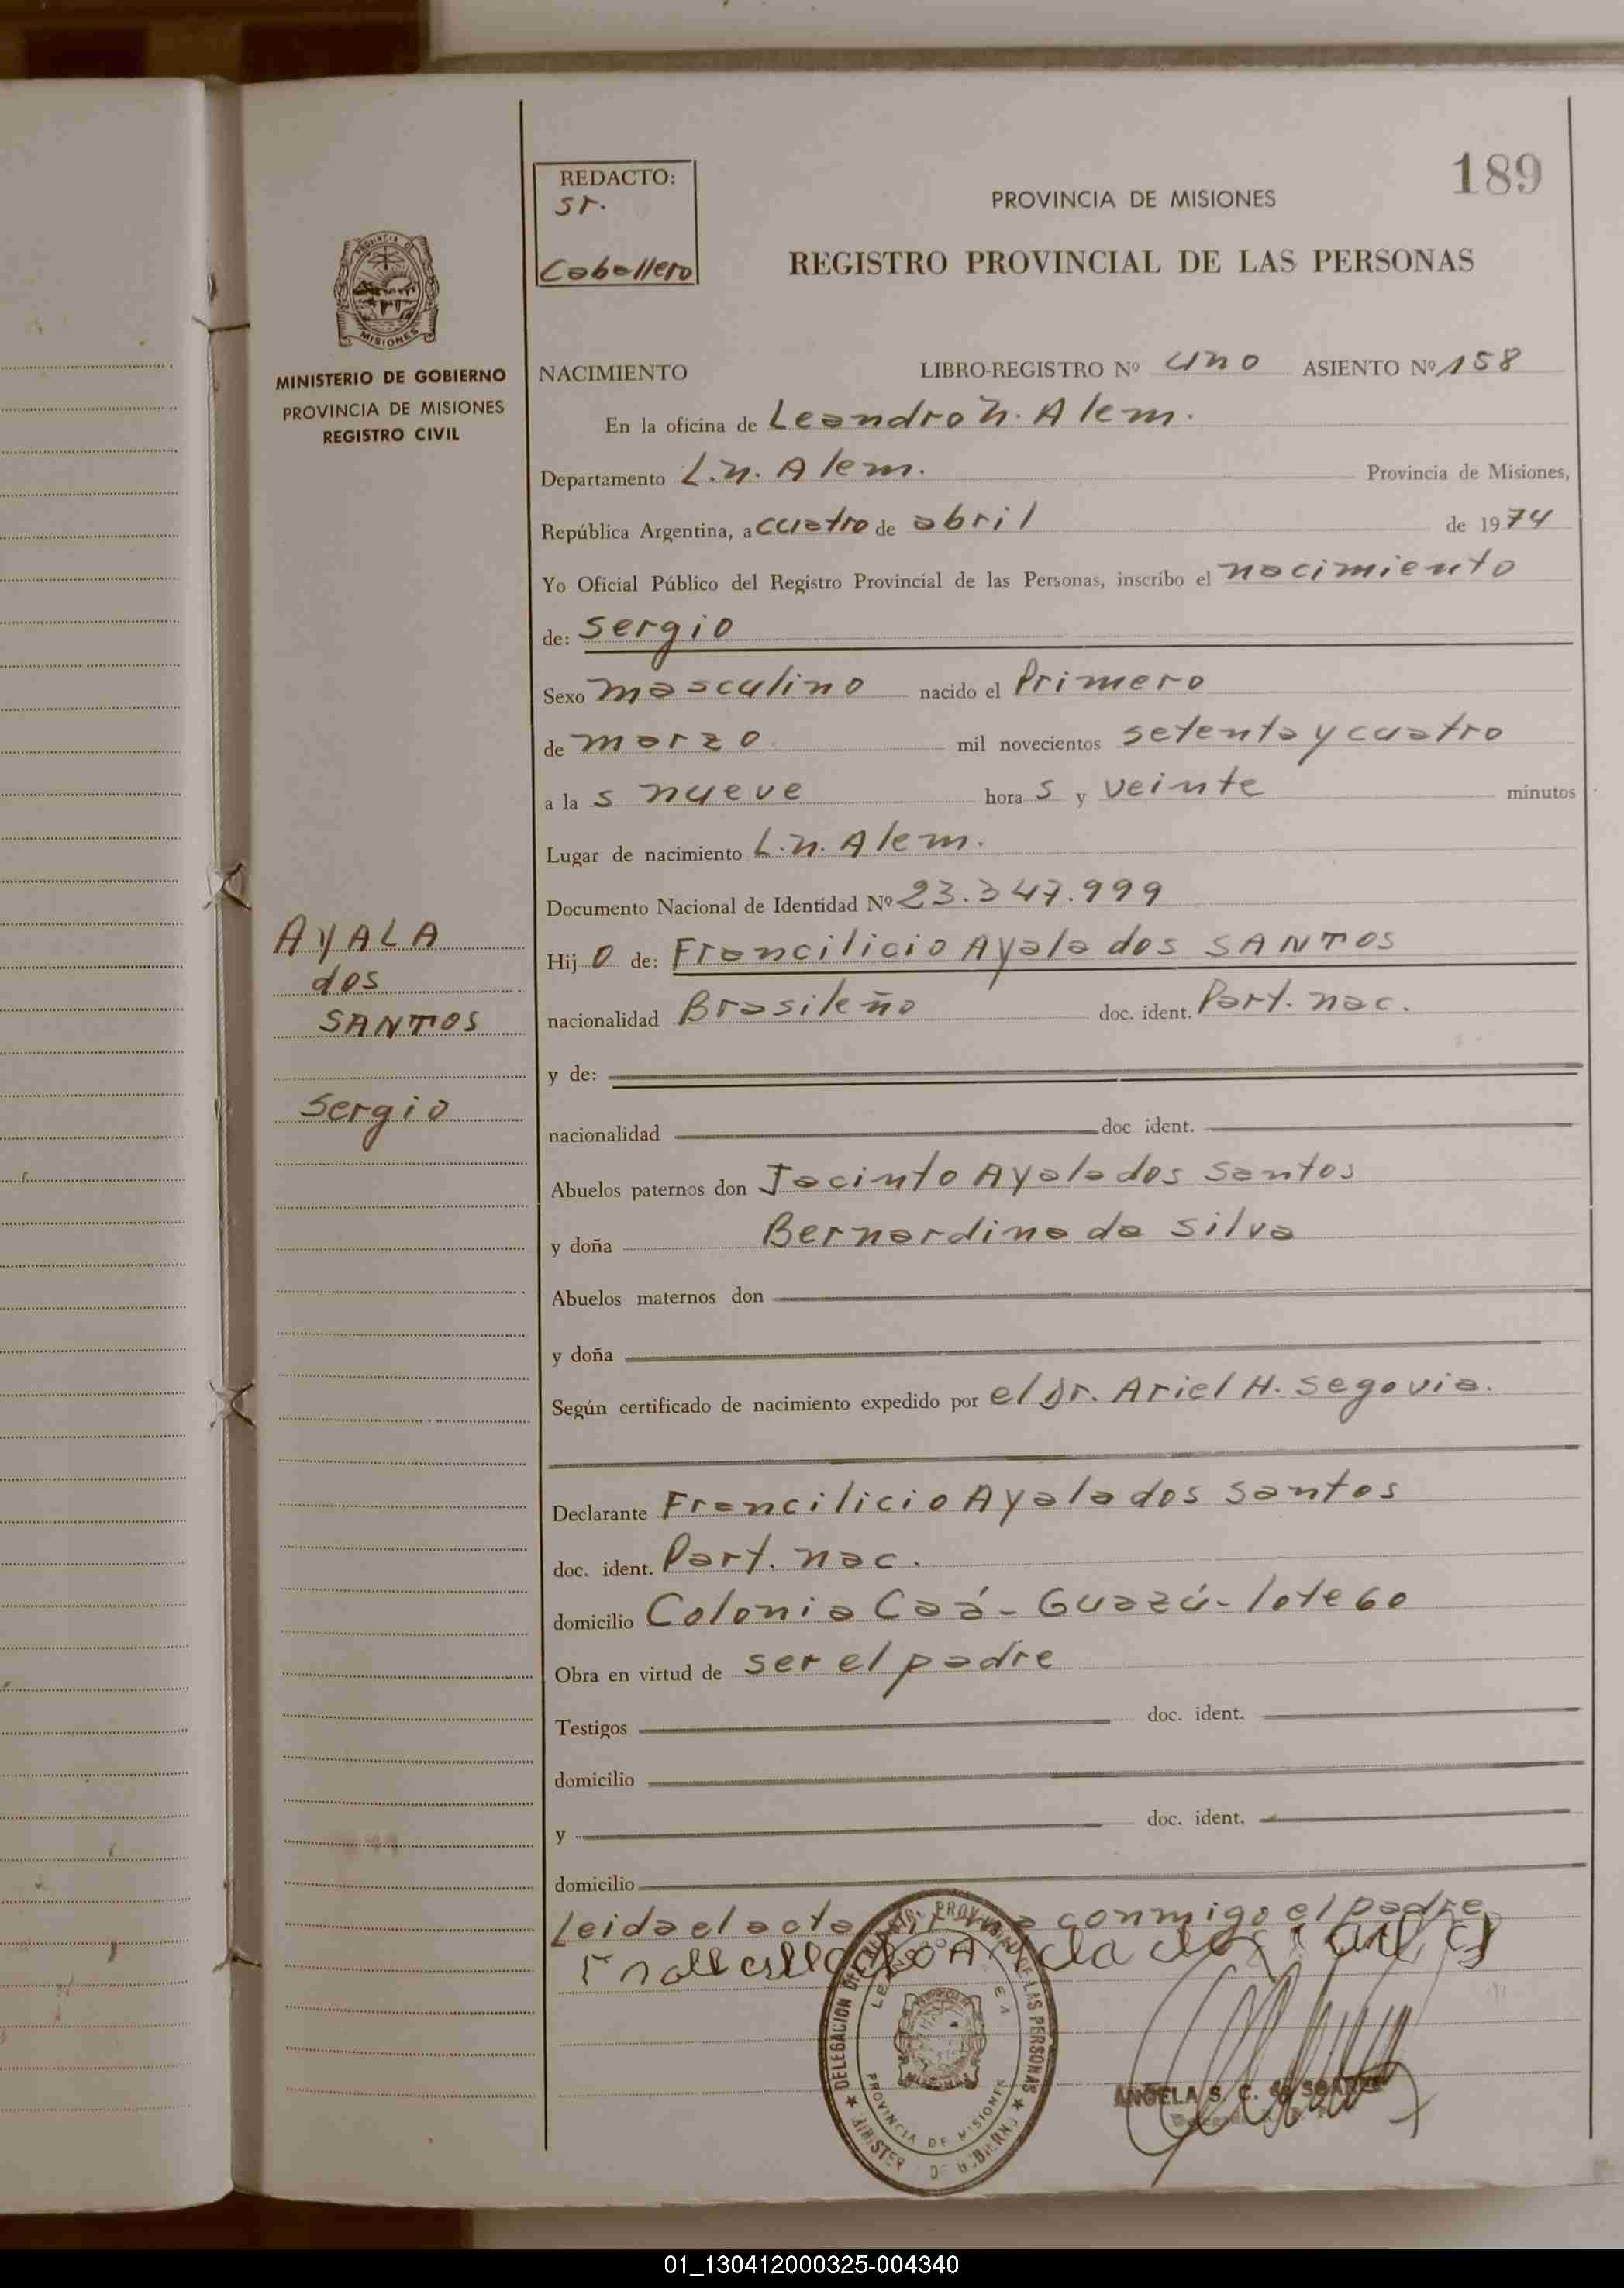 REDACTO:
sr.
Caballero
189
PROVINCIA DE MISIONES
REGISTRO PROVINCIAL DE LAS PERSONAS
PROVINCIA DE
MISIONES
MINISTERIO DE GOBIERNO
PROVINCIA DE MISIONES
REGISTRO CIVIL
NACIMIENTO LIBRO-REGISTRO Nº uno ASIENTO Nº 158
En la oficina de Leandro N. Alem.
Departamento L.N. Alem. Provincia de Misiones,
República Argentina, a cuatro de abril de 1974
Yo Oficial Público del Registro Provincial de las Personas, inscribo el nacimiento
de: Sergio
Sexo masculino nacido el Primero
de marzo mil novecientos setenta y cuatro
a la s nueve hora s y veinte minutos
Lugar de nacimiento L.N. Alem.
Documento Nacional de Identidad Nº 23.347.999
AYALA
dos
SANTOS
Sergio
Hij o de: Francilicio Ayala dos SANTOS
nacionalidad Brasileño doc. ident. Part. nac.
y de:
nacionalidad doc ident.
Abuelos paternos don Jacinto Ayala dos Santos
y doña Bernardina da Silva
Abuelos maternos don
y doña
Según certificado de nacimiento expedido por el Dr. Ariel H. Segovia.
Declarante Francilicio Ayala dos Santos
doc. ident. Part. nac.
domicilio Colonia Caá-Guazú-lote 60
Obra en virtud de ser el padre
Testigos doc. ident.
domicilio
y doc. ident.
domicilio
Leida el acta conmigo el padre
DELEGACION DEL REGISTRO PROVINCIAL DE LAS PERSONAS
PROVINCIA DE MISIONES
ANGELA S. C. de SOAREZ
01_130412000325-004340